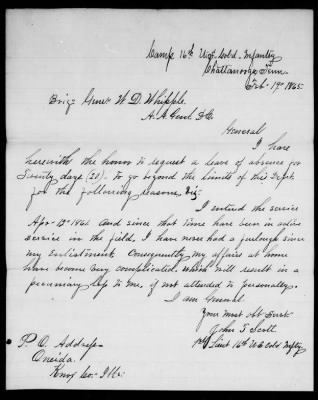 Camp 16th U.S. Cold. Infantry
Chattanooga Tenn
Feb. 19th 1865
Brig Genl W. D. Whipple
A. A. Genl D.C.
General
I have
herewith the honor to request a leave of absence for
Twenty days (20). to go beyond the limits of this Dept.
for the following reasons Viz.
I entered the service
Apr. 12th 1861 and since that time have been in active
service in the field. I have never had a furlough since
my enlistment Consequently my affairs at home
have become very complicated. which will result in a
pecuniary loss to me, if not attended to personally.
I am General
Your Most Obt Servt
John T. Scott
1st Lieut 16th U S Cold Infty
P. O. Address
Oneida.
Knox Co. Ills.